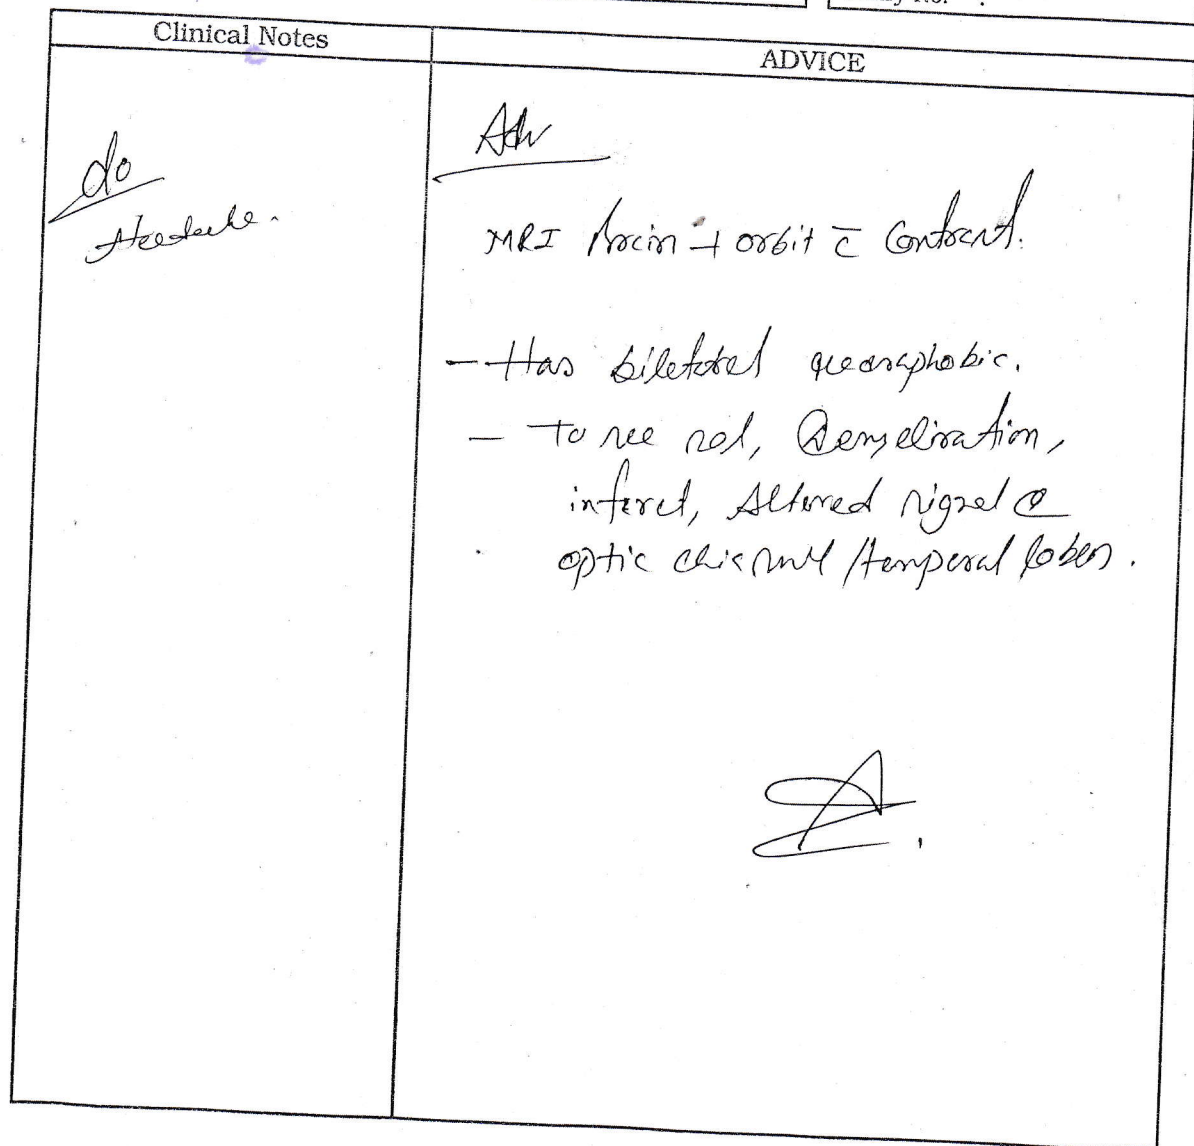 y No. .
Clinical Notes
ADVICE
c/o
Headache.
Adv
MRI Brain + orbit c̄ Contrast.
- Has bilateral
- To see SOL, Demyelination,
infarct, Altered signal @
optic chiasma / temporal lobes.